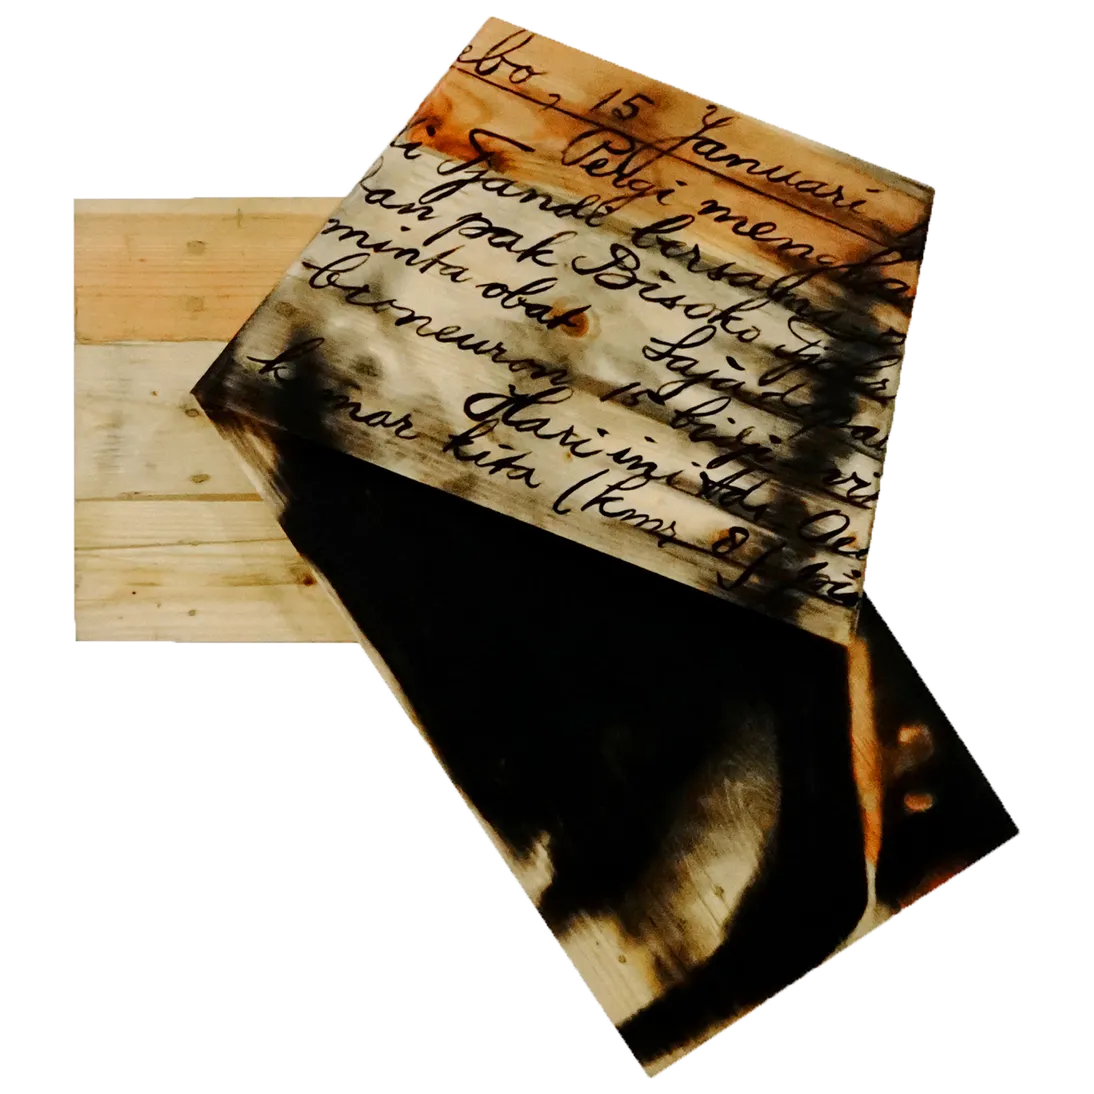 ebo, 15 Januari
Pergi mengha
di Tjande bersama
kan pak Bisoko
minta obat Saja dapa
bioneuron 15 bidji
Hari ini tdi
kamar kita (kmr 8)